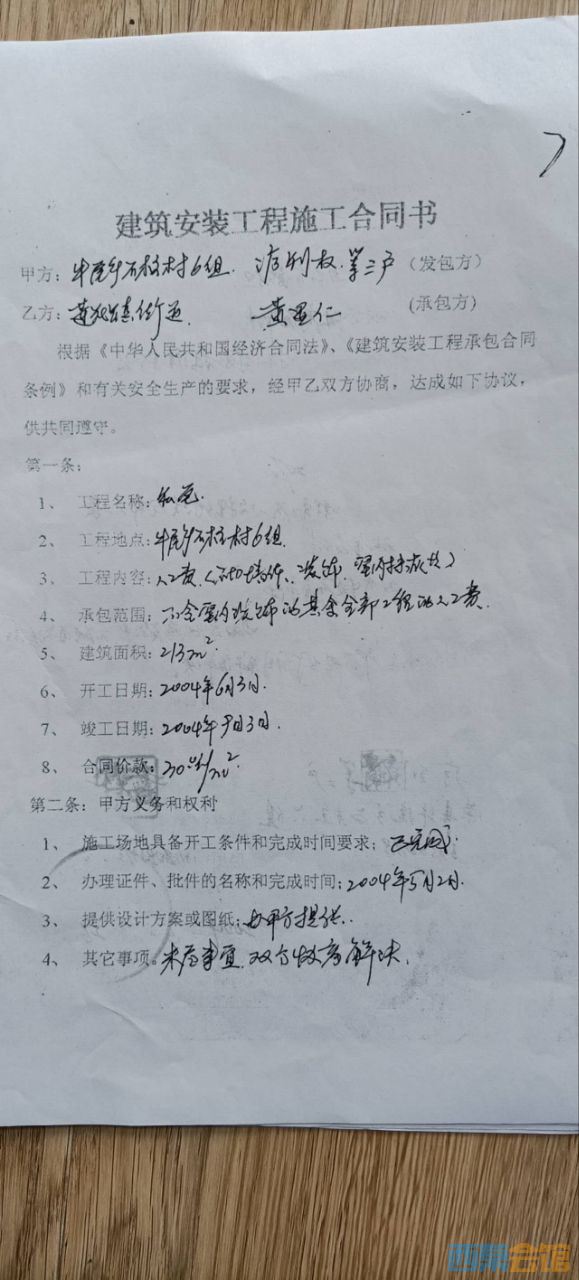 建筑安装工程施工合同书
甲方：牛尾乡石柱村6组. 权. 等三户（发包方）
乙方： 黄 仁 （承包方）
根据《中华人民共和国经济合同法》、《建筑安装工程承包合同
条例》和有关安全生产的要求，经甲乙双方协商，达成如下协议，
供共同遵守。
第一条：
1、 工程名称：私宅.
2、 工程地点：牛尾乡石柱村6组.
3、 工程内容：人工费
4、 承包范围：不含室内装饰的其余全部工程的人工费.
5、 建筑面积：213m².
6、 开工日期：2004年6月3日.
7、 竣工日期：2004年9月3日.
8、 合同价款： /m²
第二条：甲方义务和权利
1、 施工场地具备开工条件和完成时间要求：已完成.
2、 办理证件、批件的名称和完成时间：2004年5月2日.
3、 提供设计方案或图纸：由甲方提供.
4、 其它事项。未尽事宜，双方协商解决.
西祠会馆